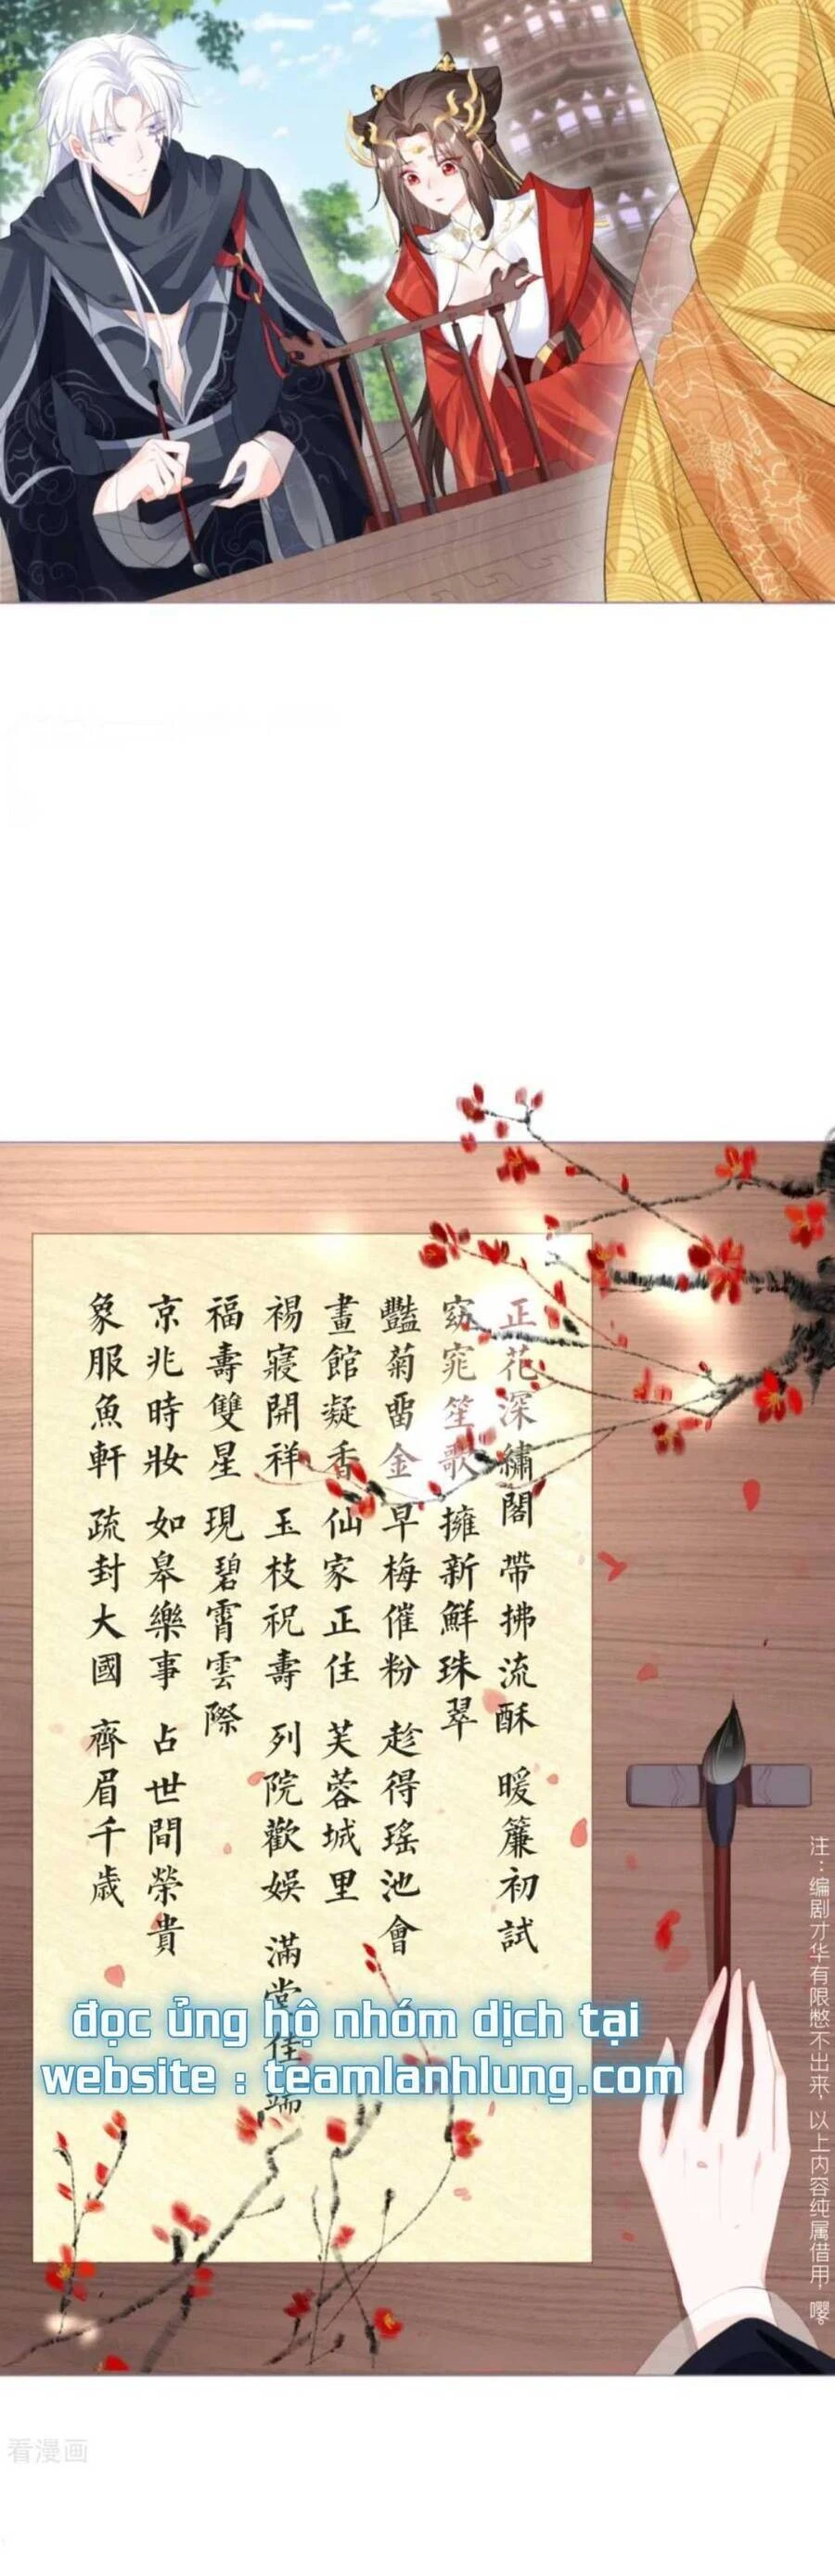 正花深繡閣 帶拂流酥 暖簾初試
窈窕笙歌 擁新鮮珠翠
豔菊畱金 早梅催粉 趁得瑤池會
畫館凝香 仙家正住 芙蓉城里
禓寢開祥 玉枝祝壽 列院歡娛 滿堂佳瑞
福壽雙星 現碧霄雲際
京兆時妝 如皋樂事 占世間榮貴
象服魚軒 疏封大國 齊眉千歲
đọc ủng hộ nhóm dịch tại
website : teamlanhlung.com
注：编剧才华有限憋不出来，以上内容纯属借用，嘤。
看漫画